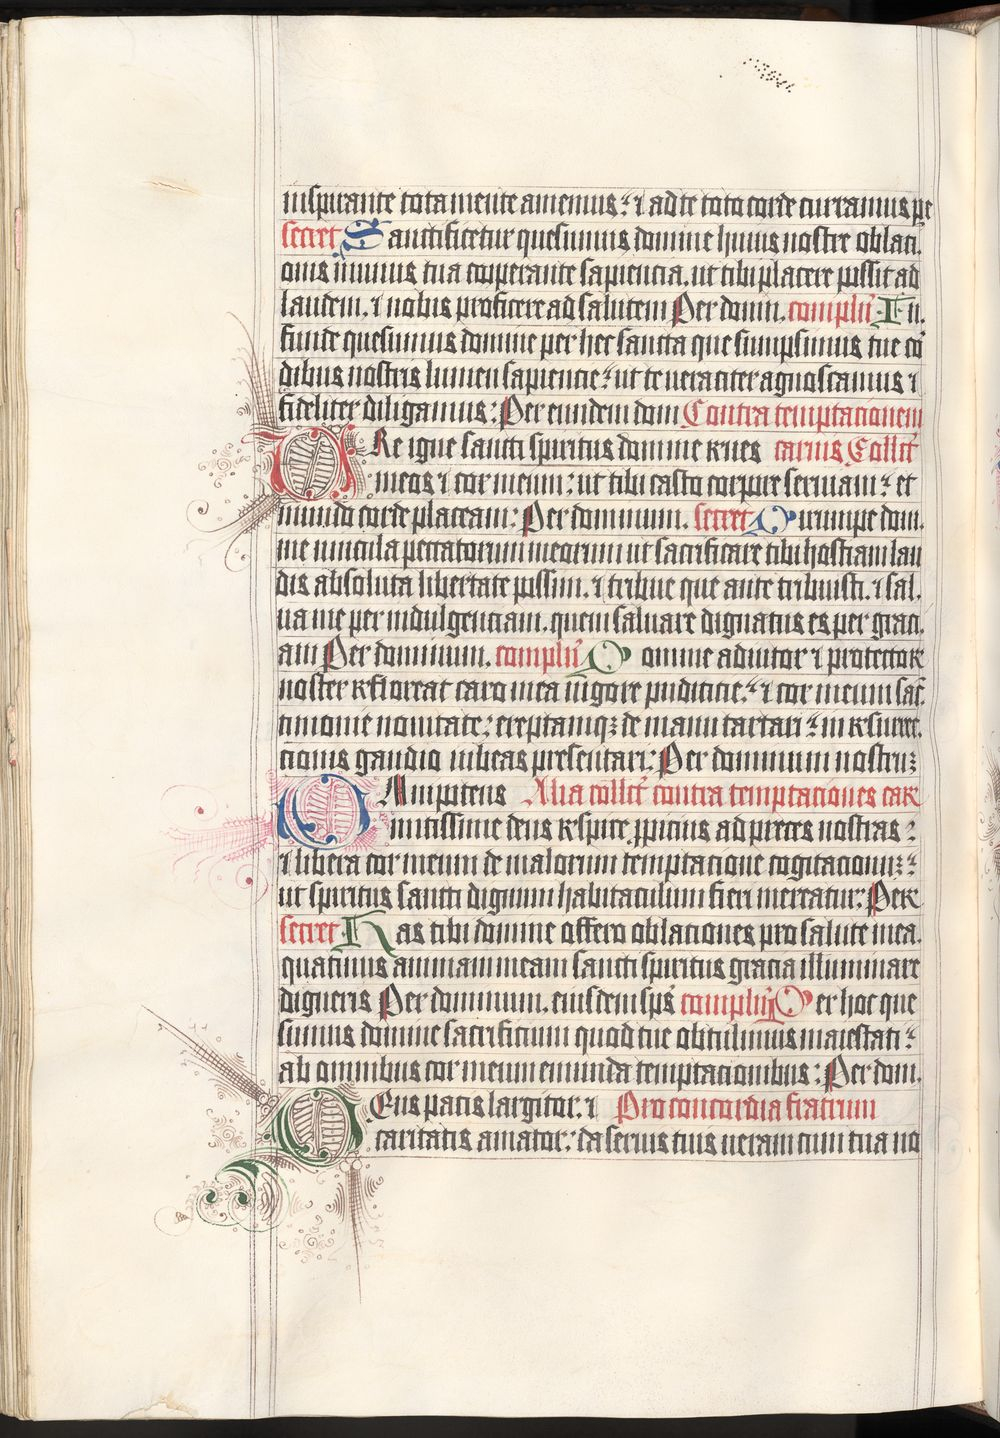 inspirante tota mente amemus: ⁊ ad te toto corde curramus pe
secret Sanctificetur quesumus domine huius nostre oblati.
onis munus tua cooperante sapiencia. ut tibi placere possit ad
laudem. ⁊ nobis proficere ad salutem Per domin. complit In.
funde quesumus domine per hec sancta que sumpsimus tue co
dibus nostris lumen sapiencie: ut te veraciter agnoscamus ⁊
fideliter diligamus: Per eundem dom Contra temptacionem
URe igne sancti spiritus domine renes carnis Collit
meos ⁊ cor meum: ut tibi casto corpore seruiam: et
mundo corde placeam: Per dominum. secret Dirumpe dom.
ne uincula peccatorum meorum ut sacrificare tibi hostiam lau
dis absoluta libertate possim. ⁊ tribue que ante tribuisti. ⁊ sal.
ua me per indulgenciam. quem saluare dignatus es per graci.
am Per dominum. complit Domine adiutor ⁊ protector
noster refloreat caro mea uigore pudicicie: ⁊ cor meum sac.
timonie nouitate: ereptamqꝫ de manu tartari: in resurrec.
cionis gaudio iubeas presentari: Per dominum nostruꝫ
OMnipotens Alia collit contra temptaciones car
mitissime deus respice ꝓpicius ad preces nostras:
⁊ libera cor meum de malorum temptacione cogitacionuꝫ:
ut spiritus sancti dignum habitaculum fieri mereatur: Per
secret Has tibi domine offero oblaciones pro salute mea.
quatinus animam meam sancti spiritus gracia illuminare
digneris Per dominum. eiusdem sps complit Per hoc que
sumus domine sacrificium quod tue obtulimus maiestati:
ab omnibus cor meum emunda temptacionibus: Per dom.
DEus pacis largitor. ⁊ Pro concordia fratrum
caritatis amator: da seruis tuis ueram cum tua uo